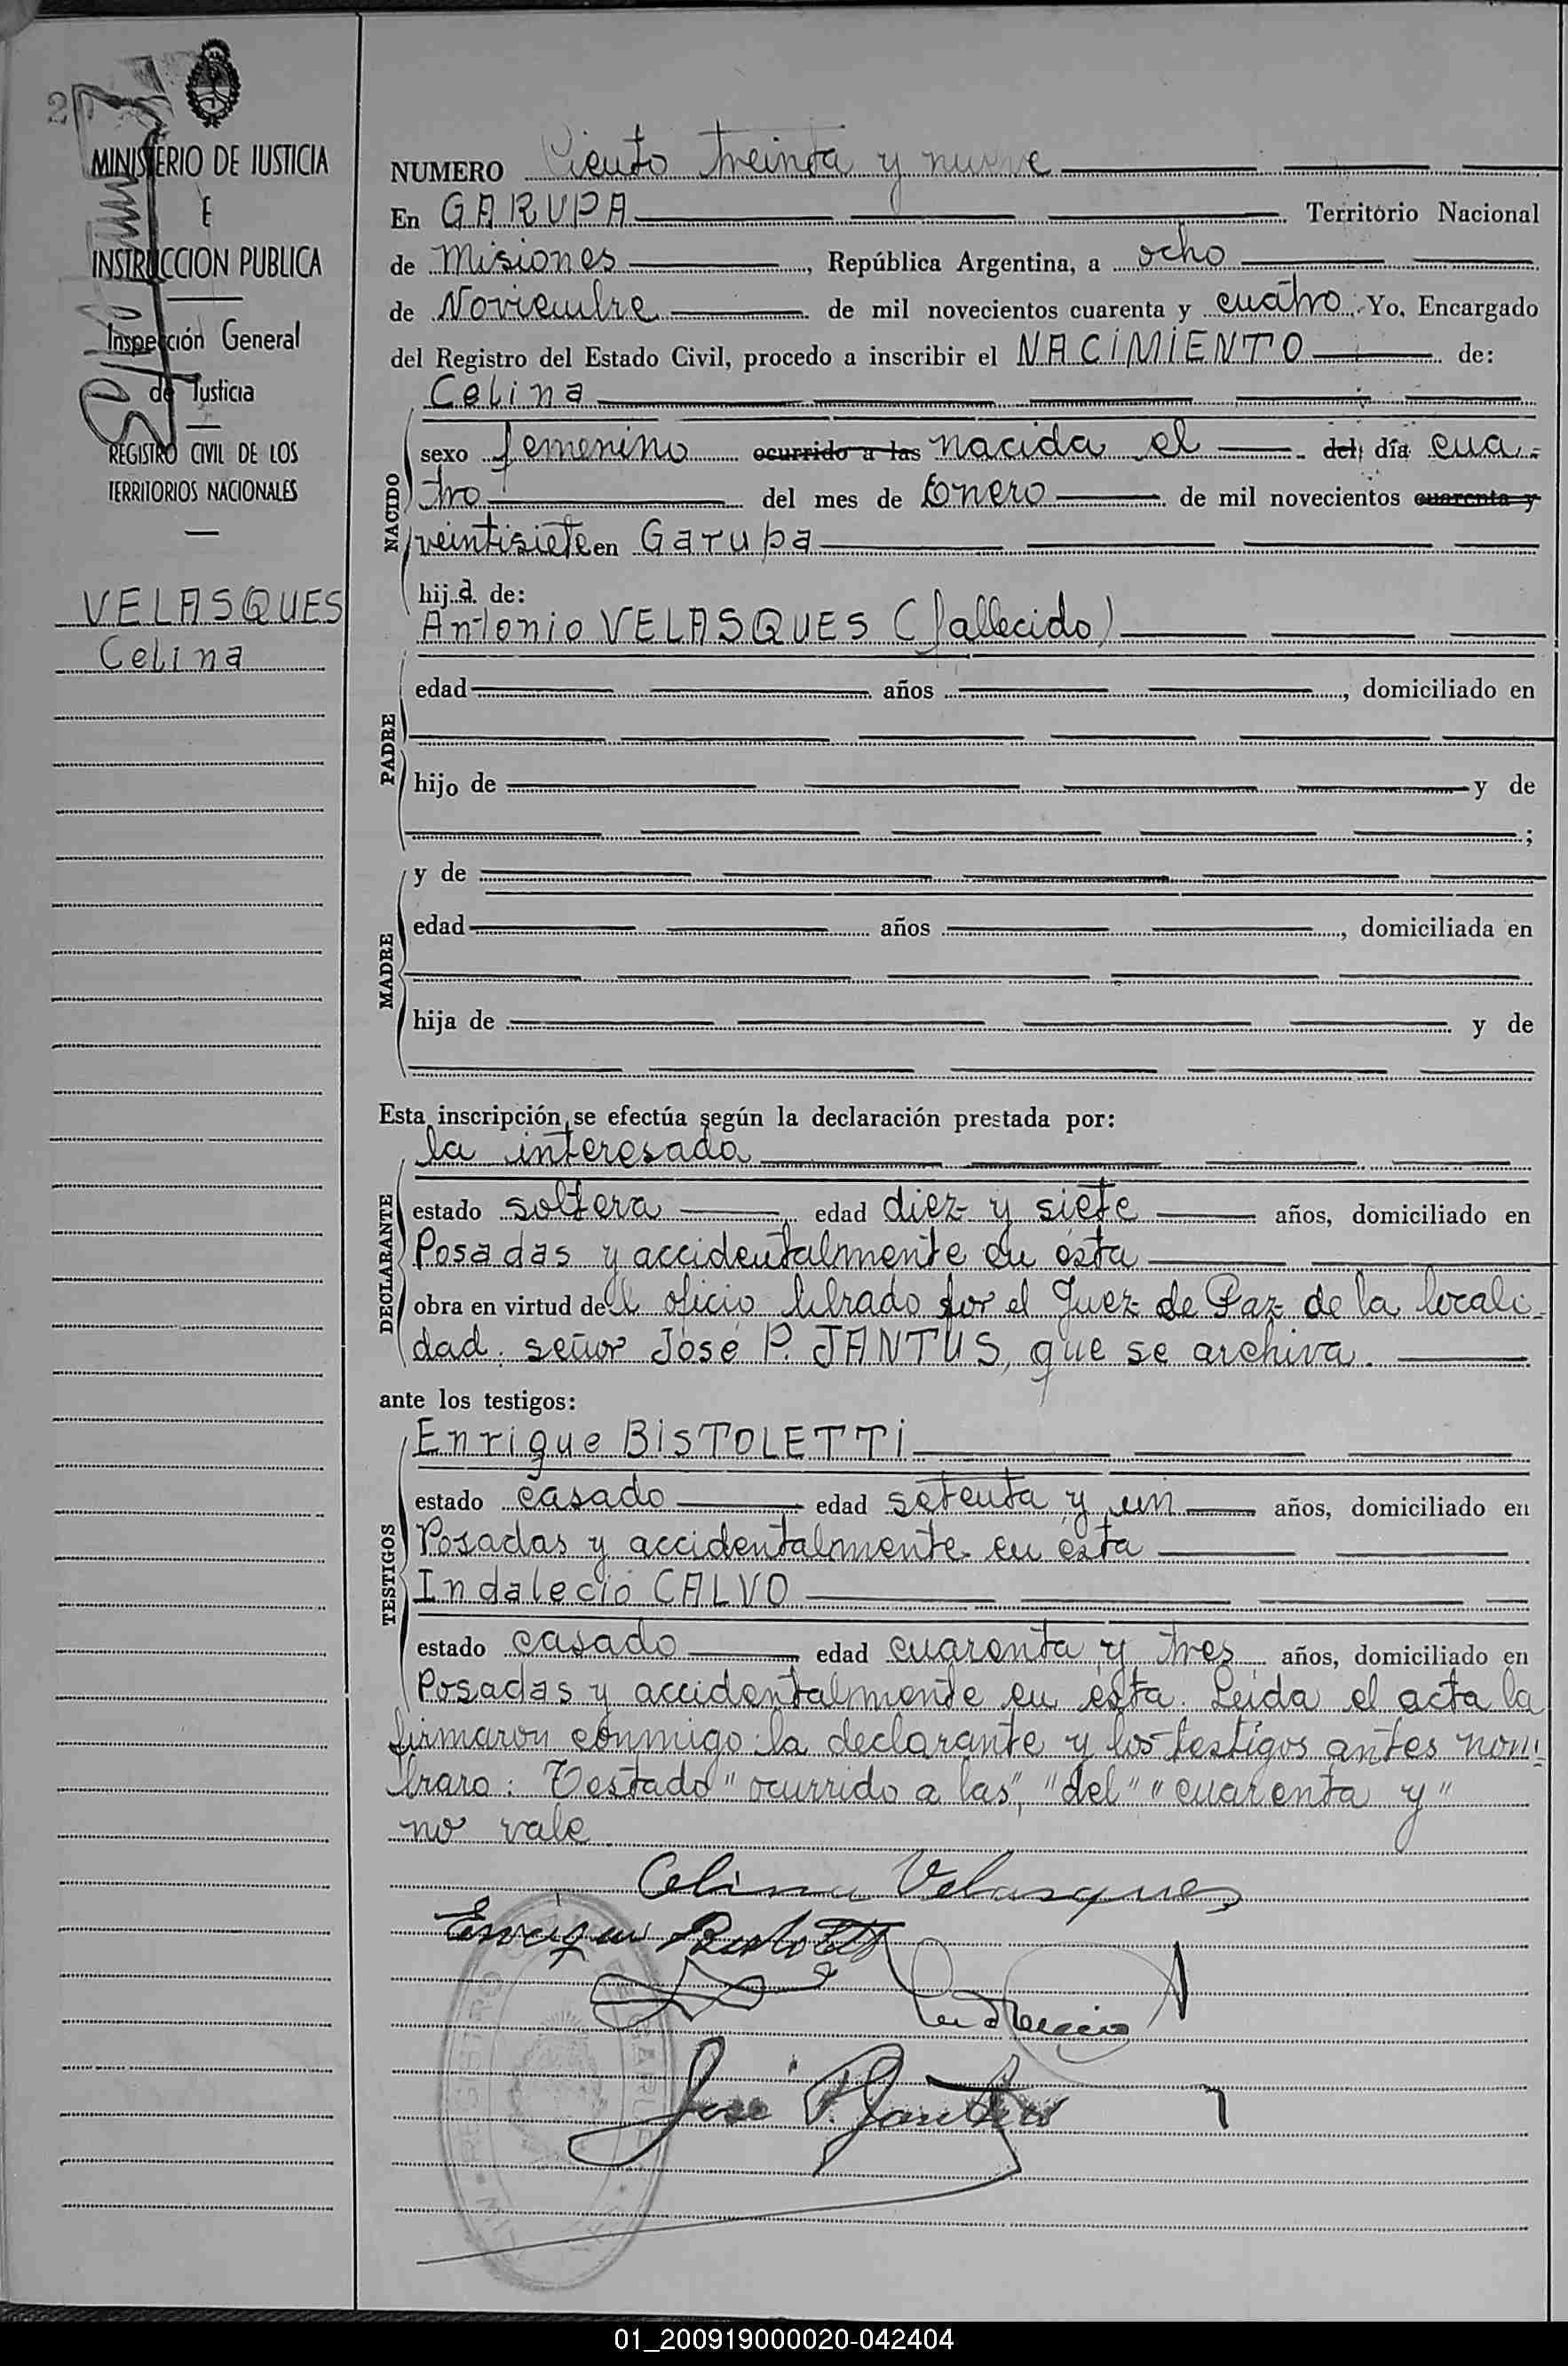 2
MINISTERIO DE JUSTICIA
E
INSTRUCCION PUBLICA
Inspección General
de Justicia
REGISTRO CIVIL DE LOS
TERRITORIOS NACIONALES
VELASQUES
Celina
NUMERO Ciento treinta y nueve
En GARUPA Territorio Nacional
de Misiones, República Argentina, a ocho
de Noviembre de mil novecientos cuarenta y cuatro. Yo, Encargado
del Registro del Estado Civil, procedo a inscribir el NACIMIENTO de:
Celina
NACIDO
sexo femenino ocurrido a las nacida el del día cua-
tro del mes de Enero de mil novecientos cuarenta y
veintisiete en Garupa
hija de:
Antonio VELASQUES (fallecido)
PADRE
edad años, domiciliado en
hijo de y de
;
y de
MADRE
edad años, domiciliada en
hija de y de
Esta inscripción se efectúa según la declaración prestada por:
la interesada
DECLARANTE
estado soltera edad diez y siete años, domiciliado en
Posadas y accidentalmente en ésta
obra en virtud del oficio librado por el Juez de Paz de la locali-
dad señor José P. JANTUS, que se archiva.
ante los testigos:
Enrique BISTOLETTI
TESTIGOS
estado casado edad setenta y un años, domiciliado en
Posadas y accidentalmente en ésta
Indalecio CALVO
estado casado edad cuarenta y tres años, domiciliado en
Posadas y accidentalmente en esta. Leida el acta la
firmaron conmigo la declarante y los testigos antes nom-
braro: Testado "ocurrido a las", "del" "cuarenta y"
no vale
Celina Velasques
Enrique Bistoletti
Indalecio
José P. Jantus
REGISTRO
01_200919000020-042404